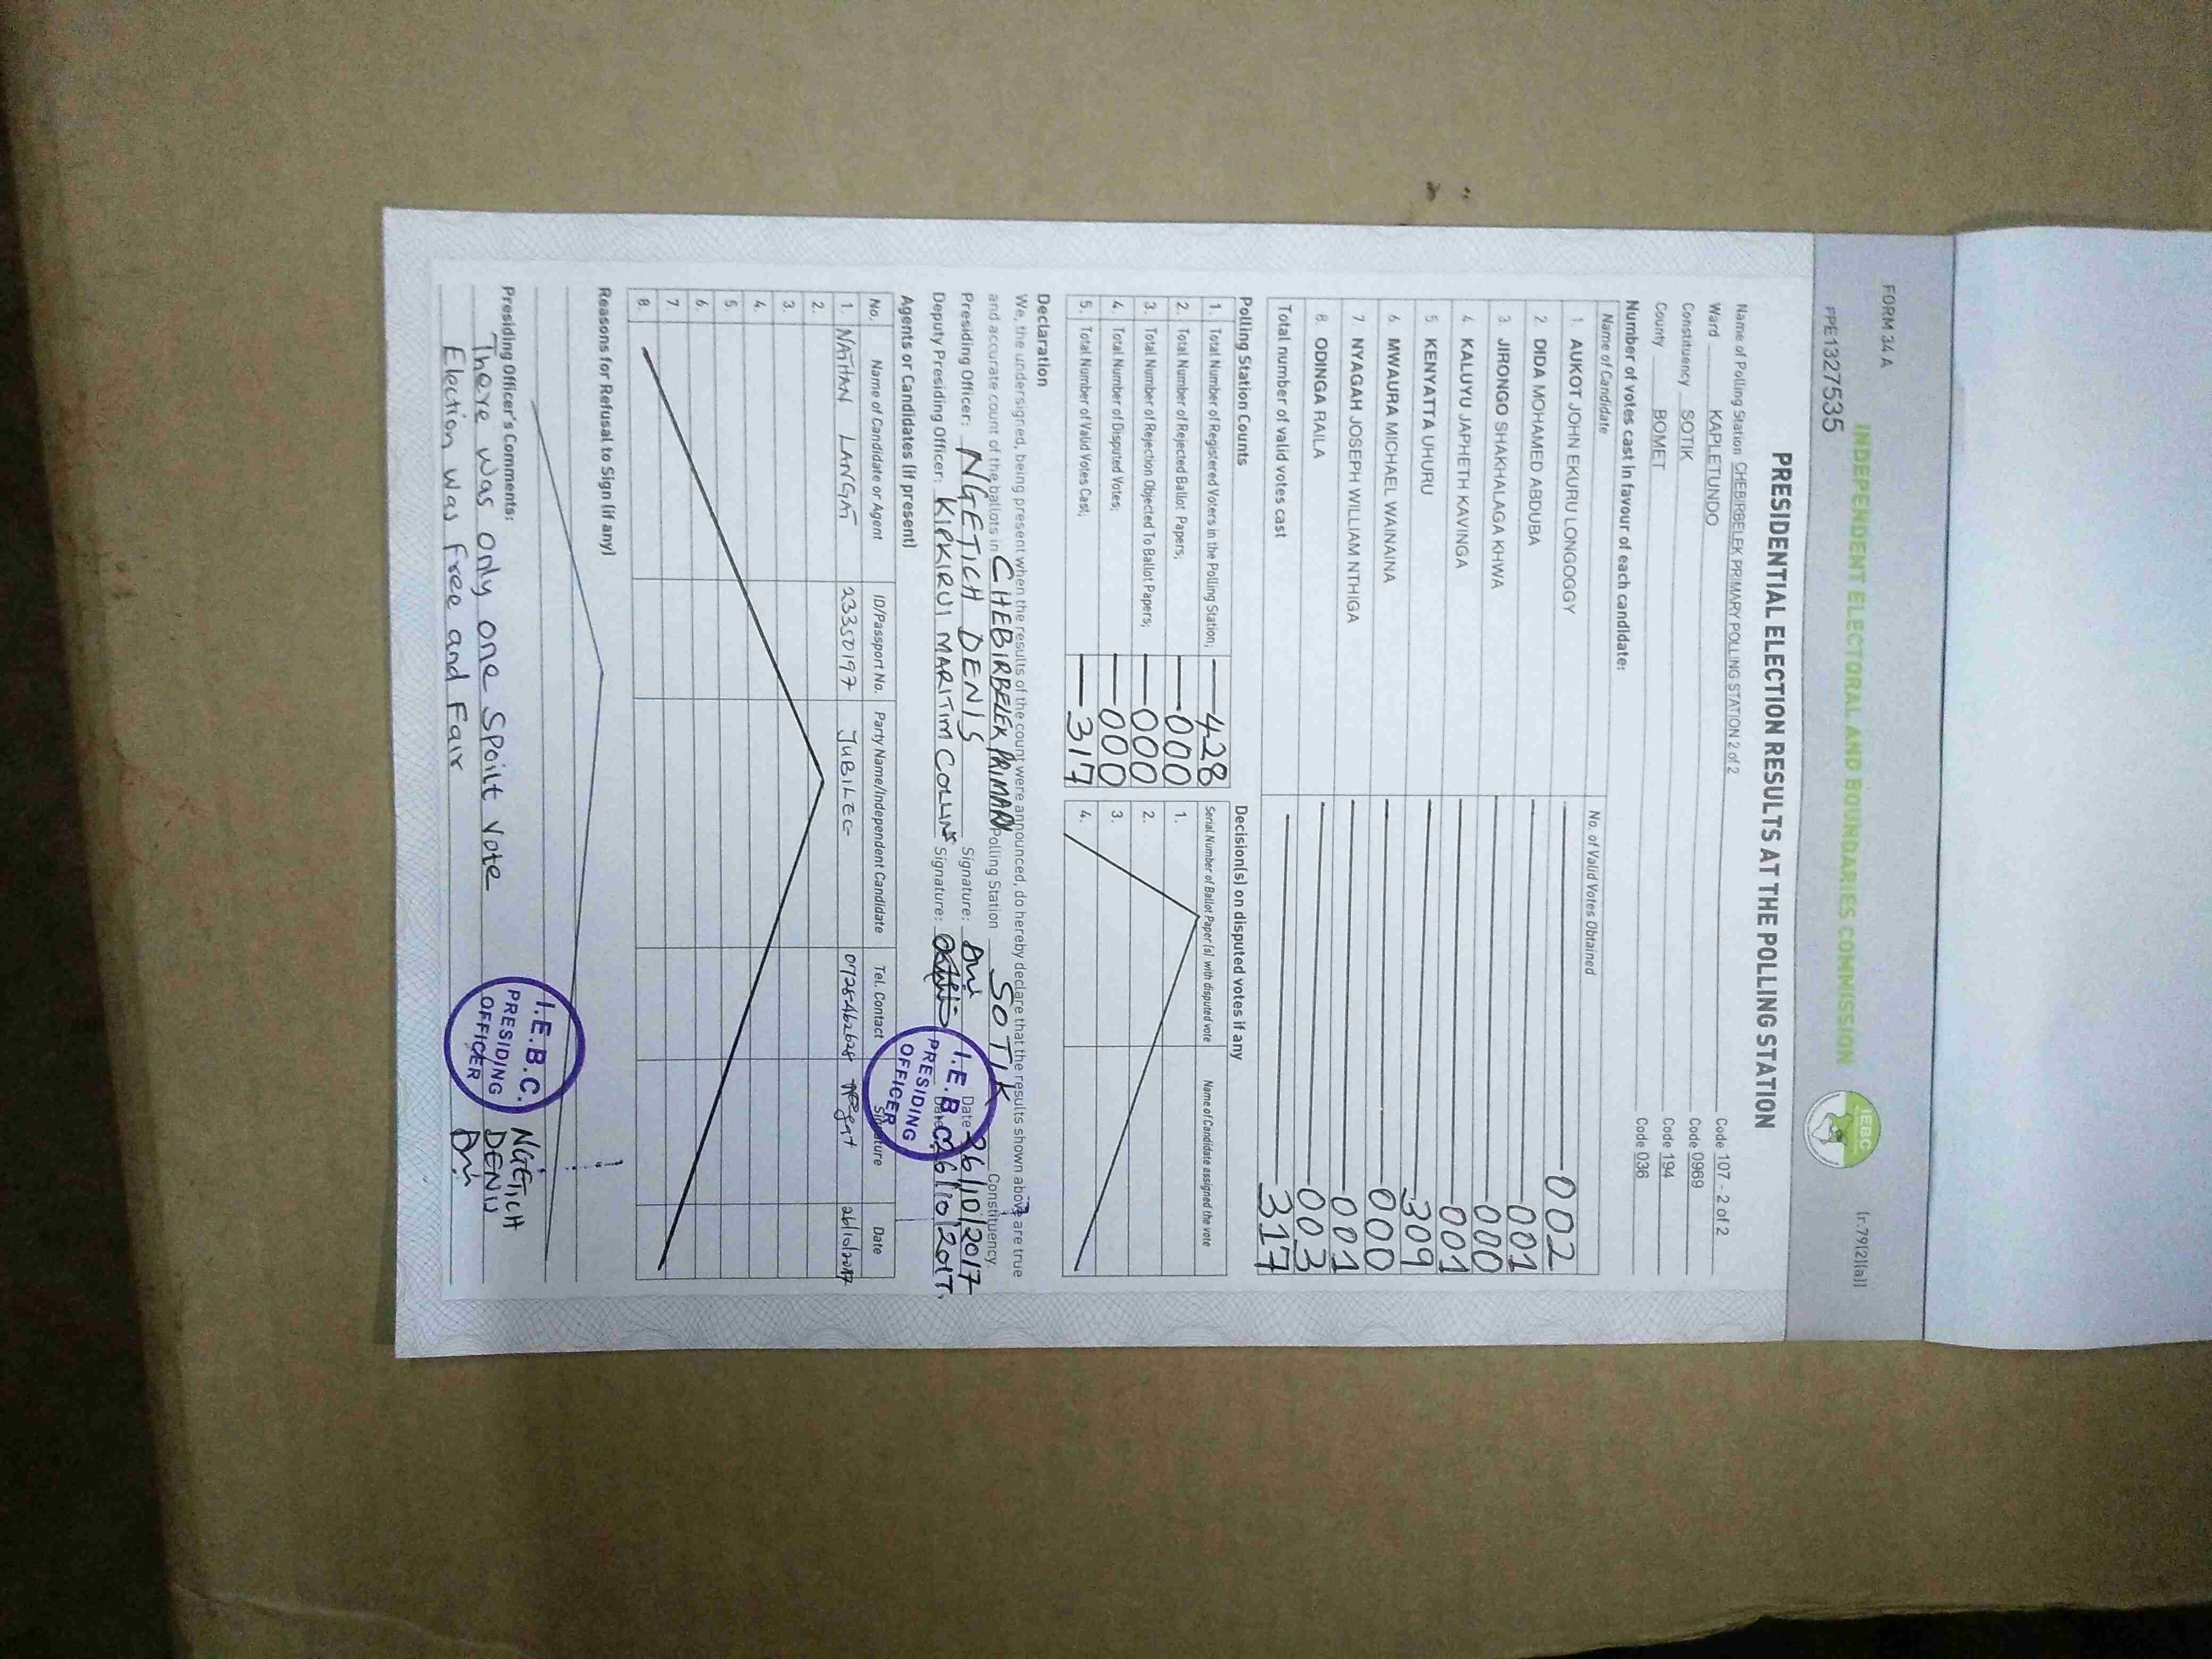 FORM 34A
[r.79(2)(a)]
INDEPENDENT ELECTORAL AND BOUNDARIES COMMISSION
IEBC
PPE1327535
PRESIDENTIAL ELECTION RESULTS AT THE POLLING STATION
Name of Polling Station CHEBIRBELEK PRIMARY POLLING STATION 2 of 2 Code 107 - 2 of 2
Ward KAPLETUNDO Code 0969
Constituency SOTIK Code 194
County BOMET Code 036
Number of votes cast in favour of each candidate:
Name of Candidate No. of Valid Votes Obtained
1. AUKOT JOHN EKURU LONGOGGY 002
2. DIDA MOHAMED ABDUBA 001
3. JIRONGO SHAKHALAGA KHWA 000
4. KALUYU JAPHETH KAVINGA 001
5. KENYATTA UHURU 309
6. MWAURA MICHAEL WAINAINA 000
7. NYAGAH JOSEPH WILLIAM NTHIGA 001
8. ODINGA RAILA 003
Total number of valid votes cast 317
Polling Station Counts
1. Total Number of Registered Voters in the Polling Station; 428
2. Total Number of Rejected Ballot Papers; 000
3. Total Number of Rejection Objected To Ballot Papers; 000
4. Total Number of Disputed Votes; 000
5. Total Number of Valid Votes Cast; 317
Decision(s) on disputed votes if any
Serial Number of Ballot Paper(s) with disputed vote Name of Candidate assigned the vote
1.
2.
3.
4.
Declaration
We, the undersigned, being present when the results of the count were announced, do hereby declare that the results shown above are true
and accurate count of the ballots in CHEBIRBELEK PRIMARY Polling Station SOTIK Constituency.
Presiding Officer: NGETICH DENIS Signature: Date 26/10/2017
Deputy Presiding Officer: KIPKIRUI MARITIM COLLINS Signature: Date 26/10/2017.
I.E.B.C.
PRESIDING
OFFICER
Agents or Candidates (if present)
No. Name of Candidate or Agent ID/Passport No. Party Name/Independent Candidate Tel. Contact Signature Date
1. NATHAN LANGAT 23350197 JUBILEE 0728462628 26/10/2017
2.
3.
4.
5.
6.
7.
8.
Reasons for Refusal to Sign (if any)
Presiding Officer's Comments:
There was only one Spoilt vote
Election was free and Fair
I.E.B.C.
PRESIDING
OFFICER
NGETICH
DENIS